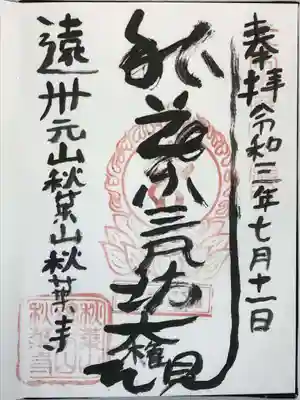 奉拝 令和三年七月十一日
秋葉山三尺坊大権現
遠州元山秋葉山秋葉寺